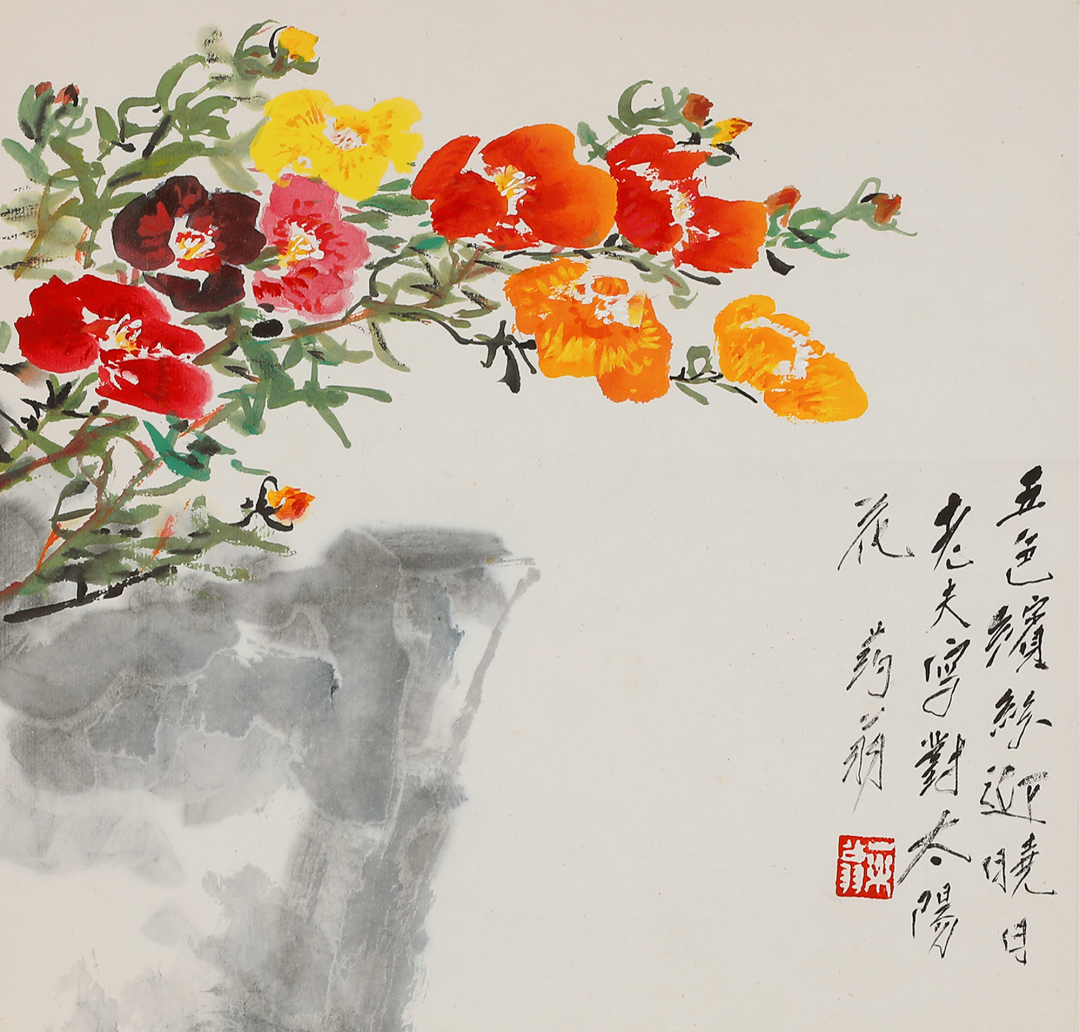 五色繽紛迎曉日
老夫寫對太陽
花 葯翁